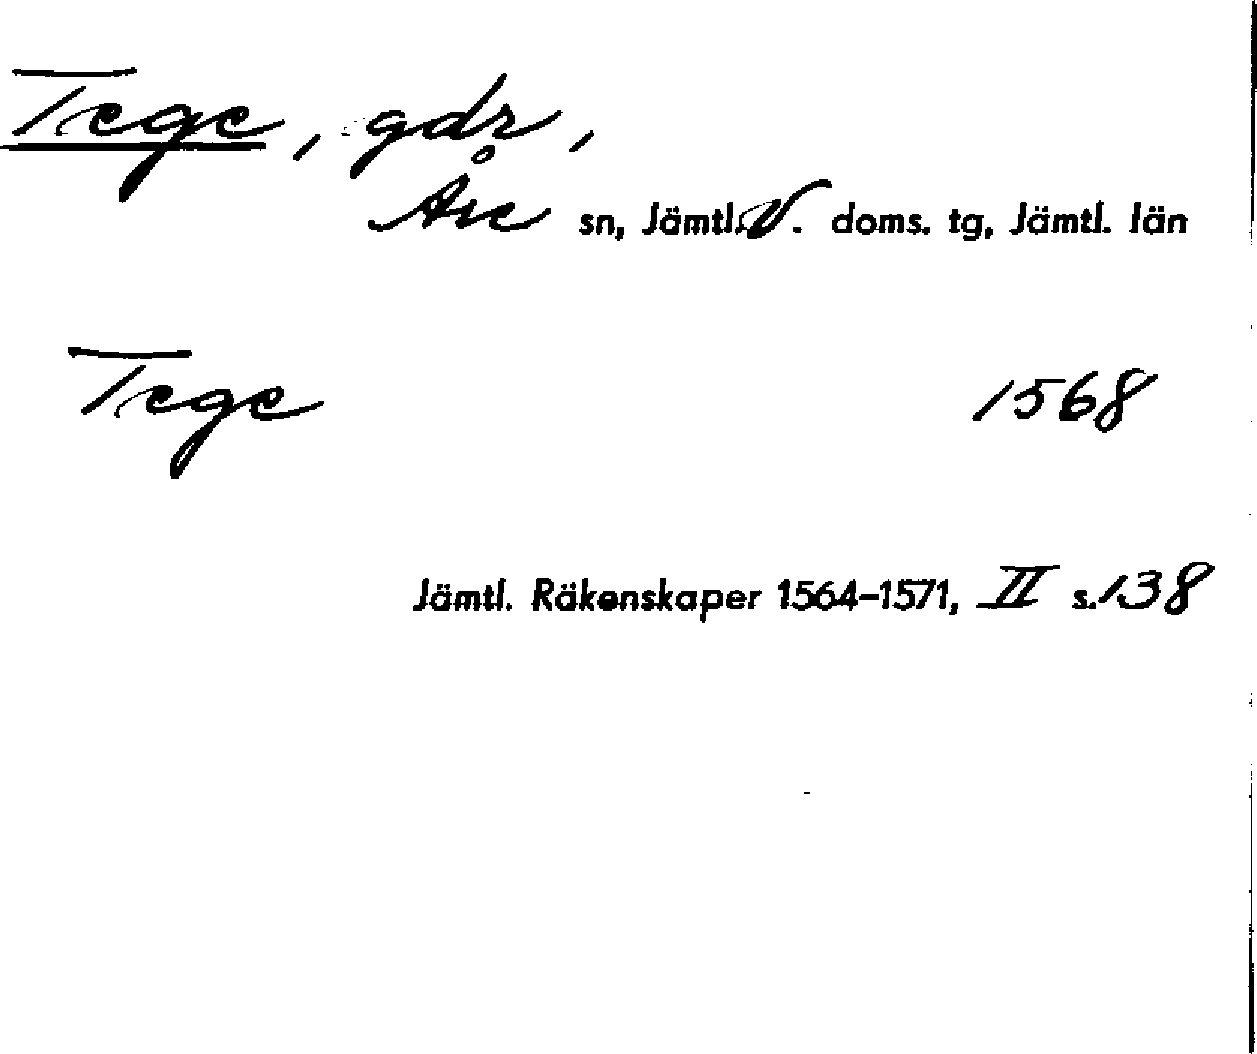 Tege, gdr,
Åre sn, Jämtl. V. doms. tg, Jämtl. län
Tege 1568
Jämtl. Räkenskaper 1564–1571, II s. 138